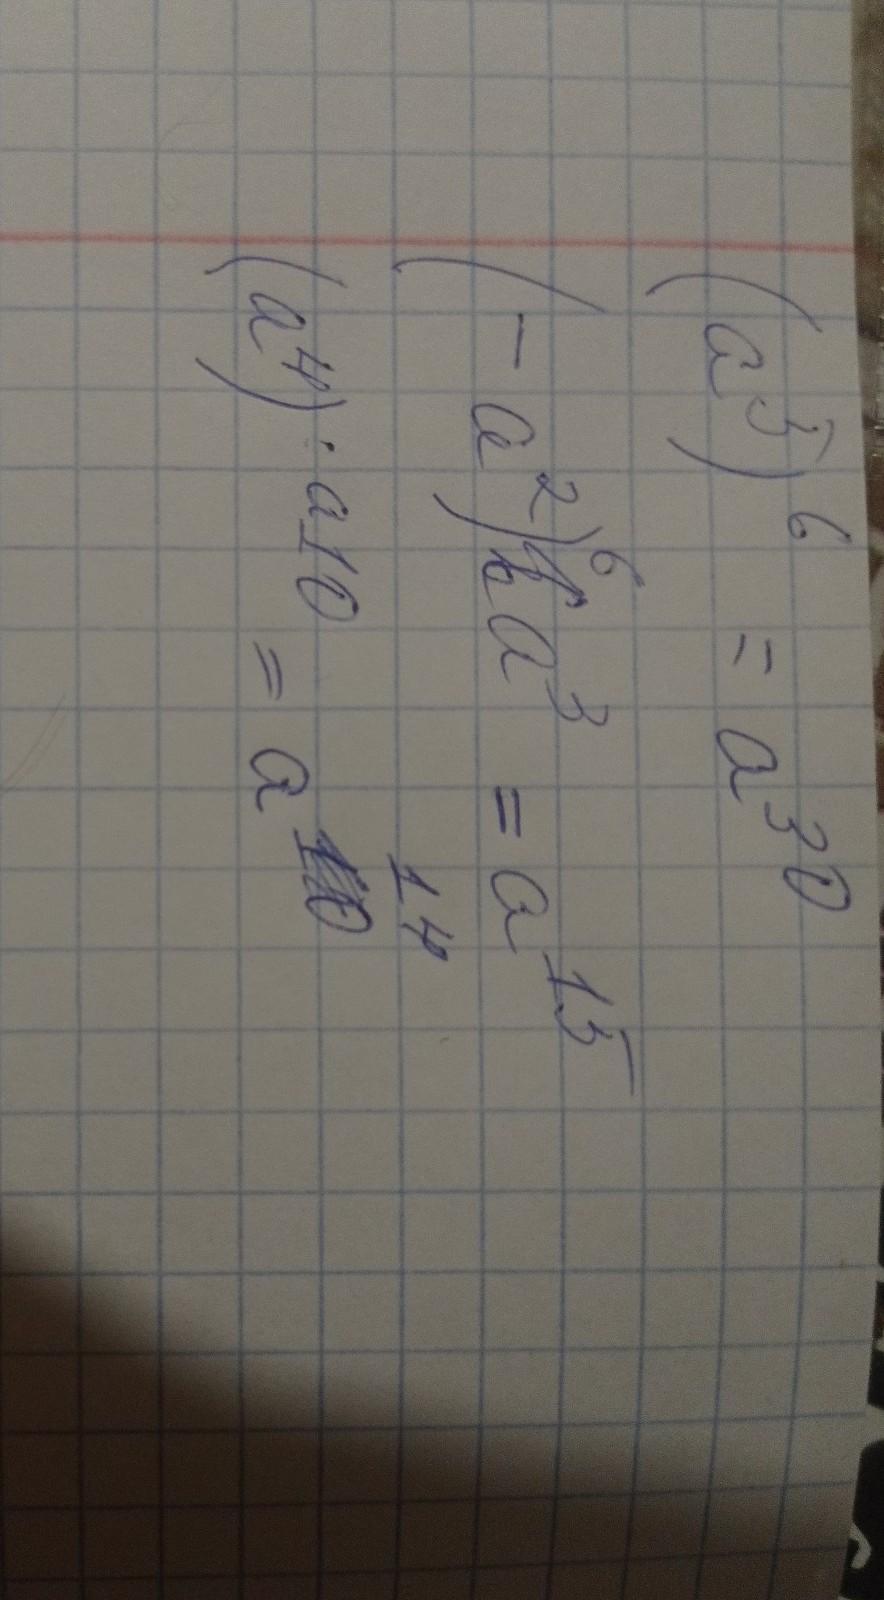 (a⁵)⁶ = a³⁰
(-a²)⁶ a³ = a¹⁵
(a⁴)·a10 = a¹⁴